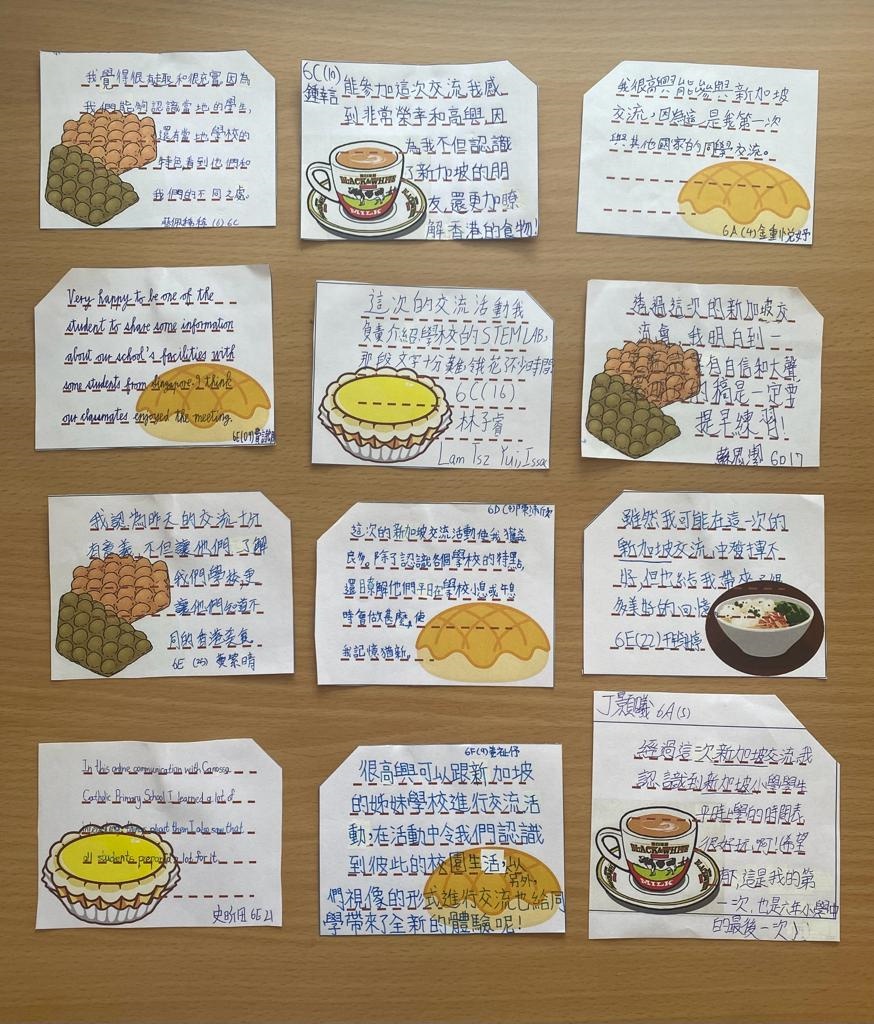 我覺得很有趣和很充實,因為
我們能夠認識當地的學生,
還有當地學校的
特色看到他們和
我們的不同之處。
(6) 6C
6C(10)
能參加這次交流我感
到非常榮幸和高興,因
為我不但認識
了新加坡的朋
友,還更加瞭
解香港的食物!
BLACK&WHITE
MILK
我很高興能參與新加坡
交流,因為這是我第一次
與其他國家的同學交流。
6A(4)
Very happy to be one of the
student to share some information
about our school's facilities with
some students from Singapore. I think
our classmates enjoyed the meeting.
6E(09)
這次的交流活動我
負責介紹學校的STEM LAB,
那段文字十分難,我花不少時間
6C(16)
林子睿
Lam Tsz Yui, Issac
透過這次的新加坡交
流會,我明白到一
有自信和大聲
的稿是一定要
提早練習!
6D17
我認為昨天的交流十分
有意義,不但讓他們了解
我們學校,更
讓他們知道不
同的香港美食
6E (25) 黃紫晴
6D(9)
這次的新加坡交流活動使我獲益
良多。除了認識各個學校的特點,
還且瞭解他們平日在學校小息或午息
時會做甚麼,使
我記憶猶新。
雖然我可能在這一次的
新加坡交流中發揮不
好,但也給我帶來了很
多美好的回憶
6E(22)
In this online communication with Canossa
Catholic Primary School I learned a lot of
interesting things about them I also saw that
all students prepared a lot for it.
6E21
6F(9)
很高興可以跟新加坡
的姊妹學校進行交流活
動,在活動中令我們認識
到彼此的校園生活,以
另外,
們視像的形式進行交流也給同
學帶來了全新的體驗呢!
丁顥曦 6A(5)
經過這次新加坡交流,我
認識到新加坡小學學生
平時上學的時間表
很好玩啊!(希望
這是我的第
一次,也是六年小學中
的最後一次)
BLACK&WHITE
MILK